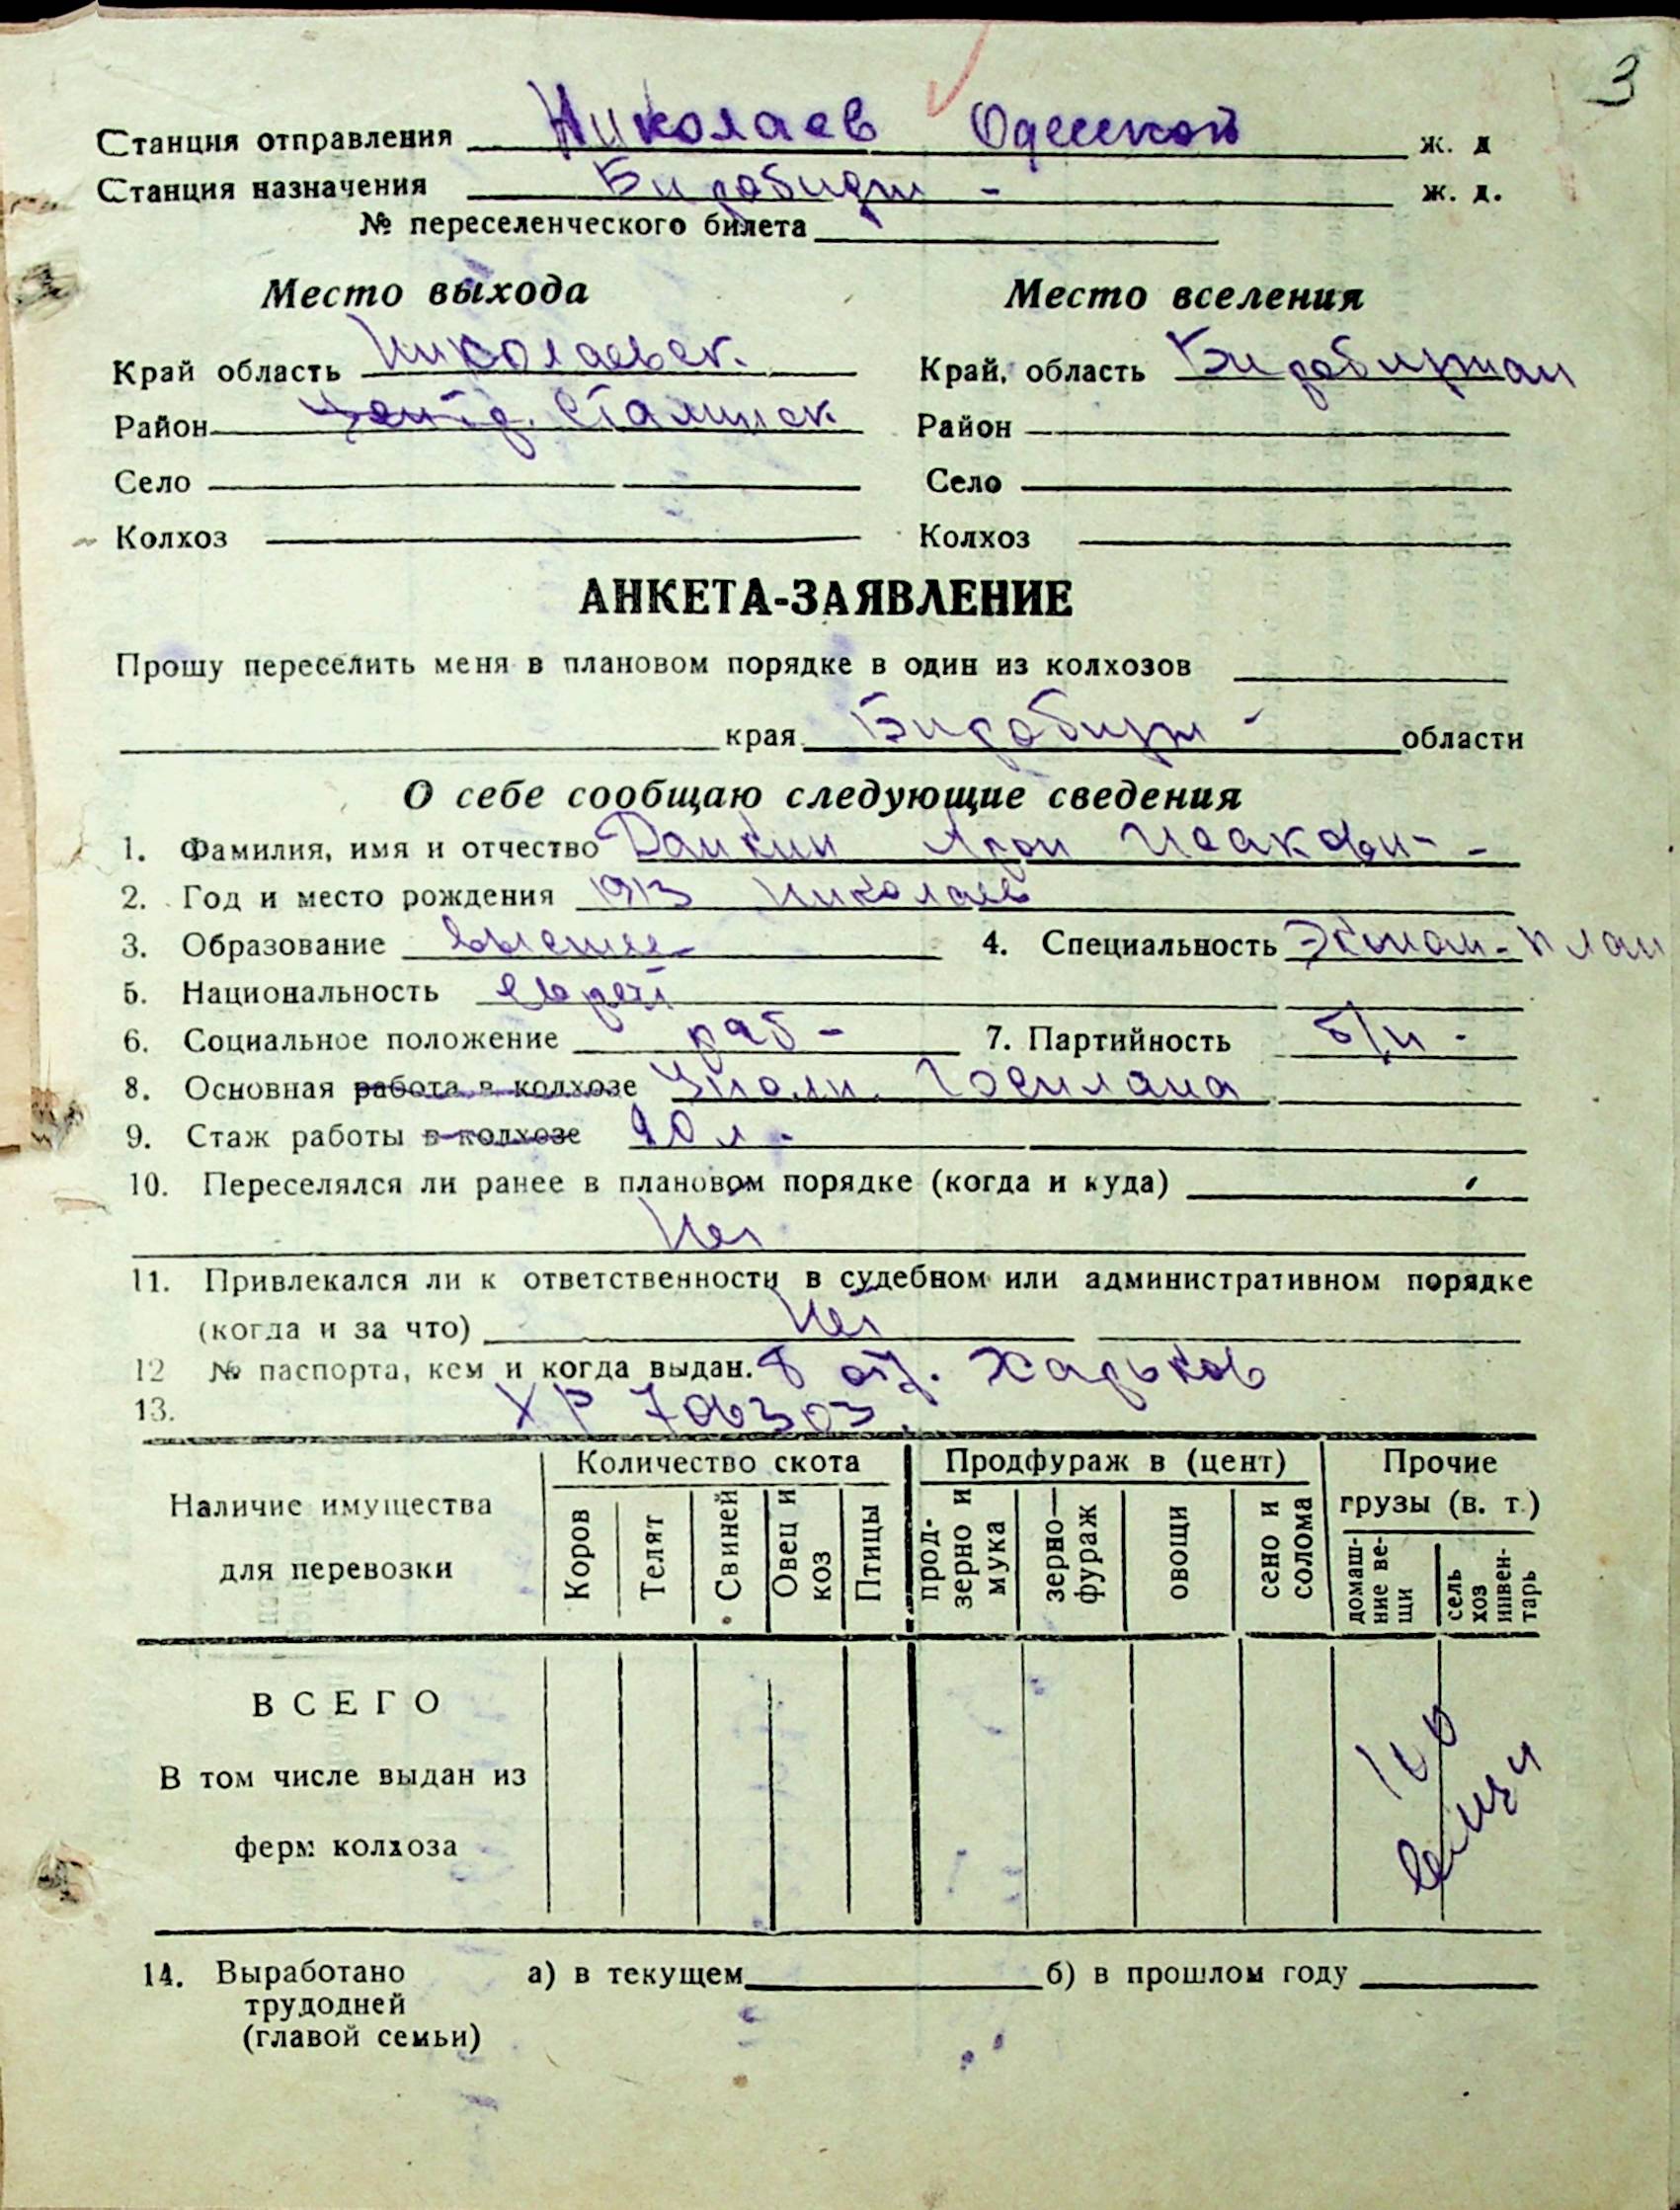 3
Станция отправления Николаев Одесской ж. д
Станция назначения Биробидж - ж. д.
№ переселенческого билета
Место выхода Место вселения
Край область Николаевск. Край, область Биробиджан
Район Центр. Сталинск Район
Село Село
Колхоз Колхоз
АНКЕТА-ЗАЯВЛЕНИЕ
Прошу переселить меня в плановом порядке в один из колхозов
края Биробидж - области
О себе сообщаю следующие сведения
1. Фамилия, имя и отчество Арон Исакович -
2. Год и место рождения 1913 Николаев
3. Образование высшее 4. Специальность Эконом-план
5. Национальность еврей
6. Социальное положение раб - 7. Партийность б/п -
8. Основная работа в колхозе Уполн. Госплана
9. Стаж работы в колхозе л.
10. Переселялся ли ранее в плановом порядке (когда и куда)
Нет
11. Привлекался ли к ответственности в судебном или административном порядке
(когда и за что) Нет
12 № паспорта, кем и когда выдан. 8 от. Харьков
13. ХР 706303.
Наличие имущества для перевозки
Количество скота Продфураж в (цент) Прочие грузы (в. т.)
Коров Телят Свиней Овец и коз Птицы прод-зерно и мука зерно-фураж овощи сено и солома домаш-ние ве-щи сель хоз инвен-тарь
ВСЕГО
В том числе выдан из
ферм колхоза
вещи
14. Выработано а) в текущем б) в прошлом году
трудодней
(главой семьи)